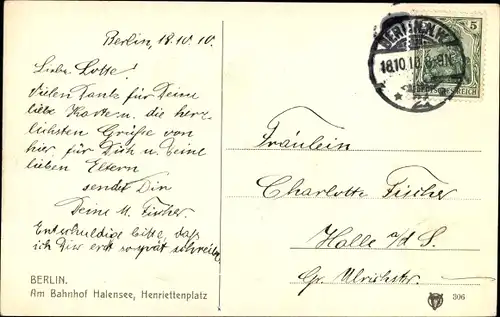 Berlin, 18.10.10.
Liebe Lotte!
Vielen Dank für Deine
liebe Karte u. die herz-
lichsten Grüße von
hier für Dich u. Deine
lieben Eltern
sendet Dir
Deine M. Fischer.
Entschuldige bitte, daß
ich Dir erst so spät schreibe.
BERLIN.
Am Bahnhof Halensee, Henriettenplatz
18.10.10
5
DEUTSCHES REICH
Fräulein
Charlotte Fischer
Halle a/d S.
Gr. Ulrichstr.
306